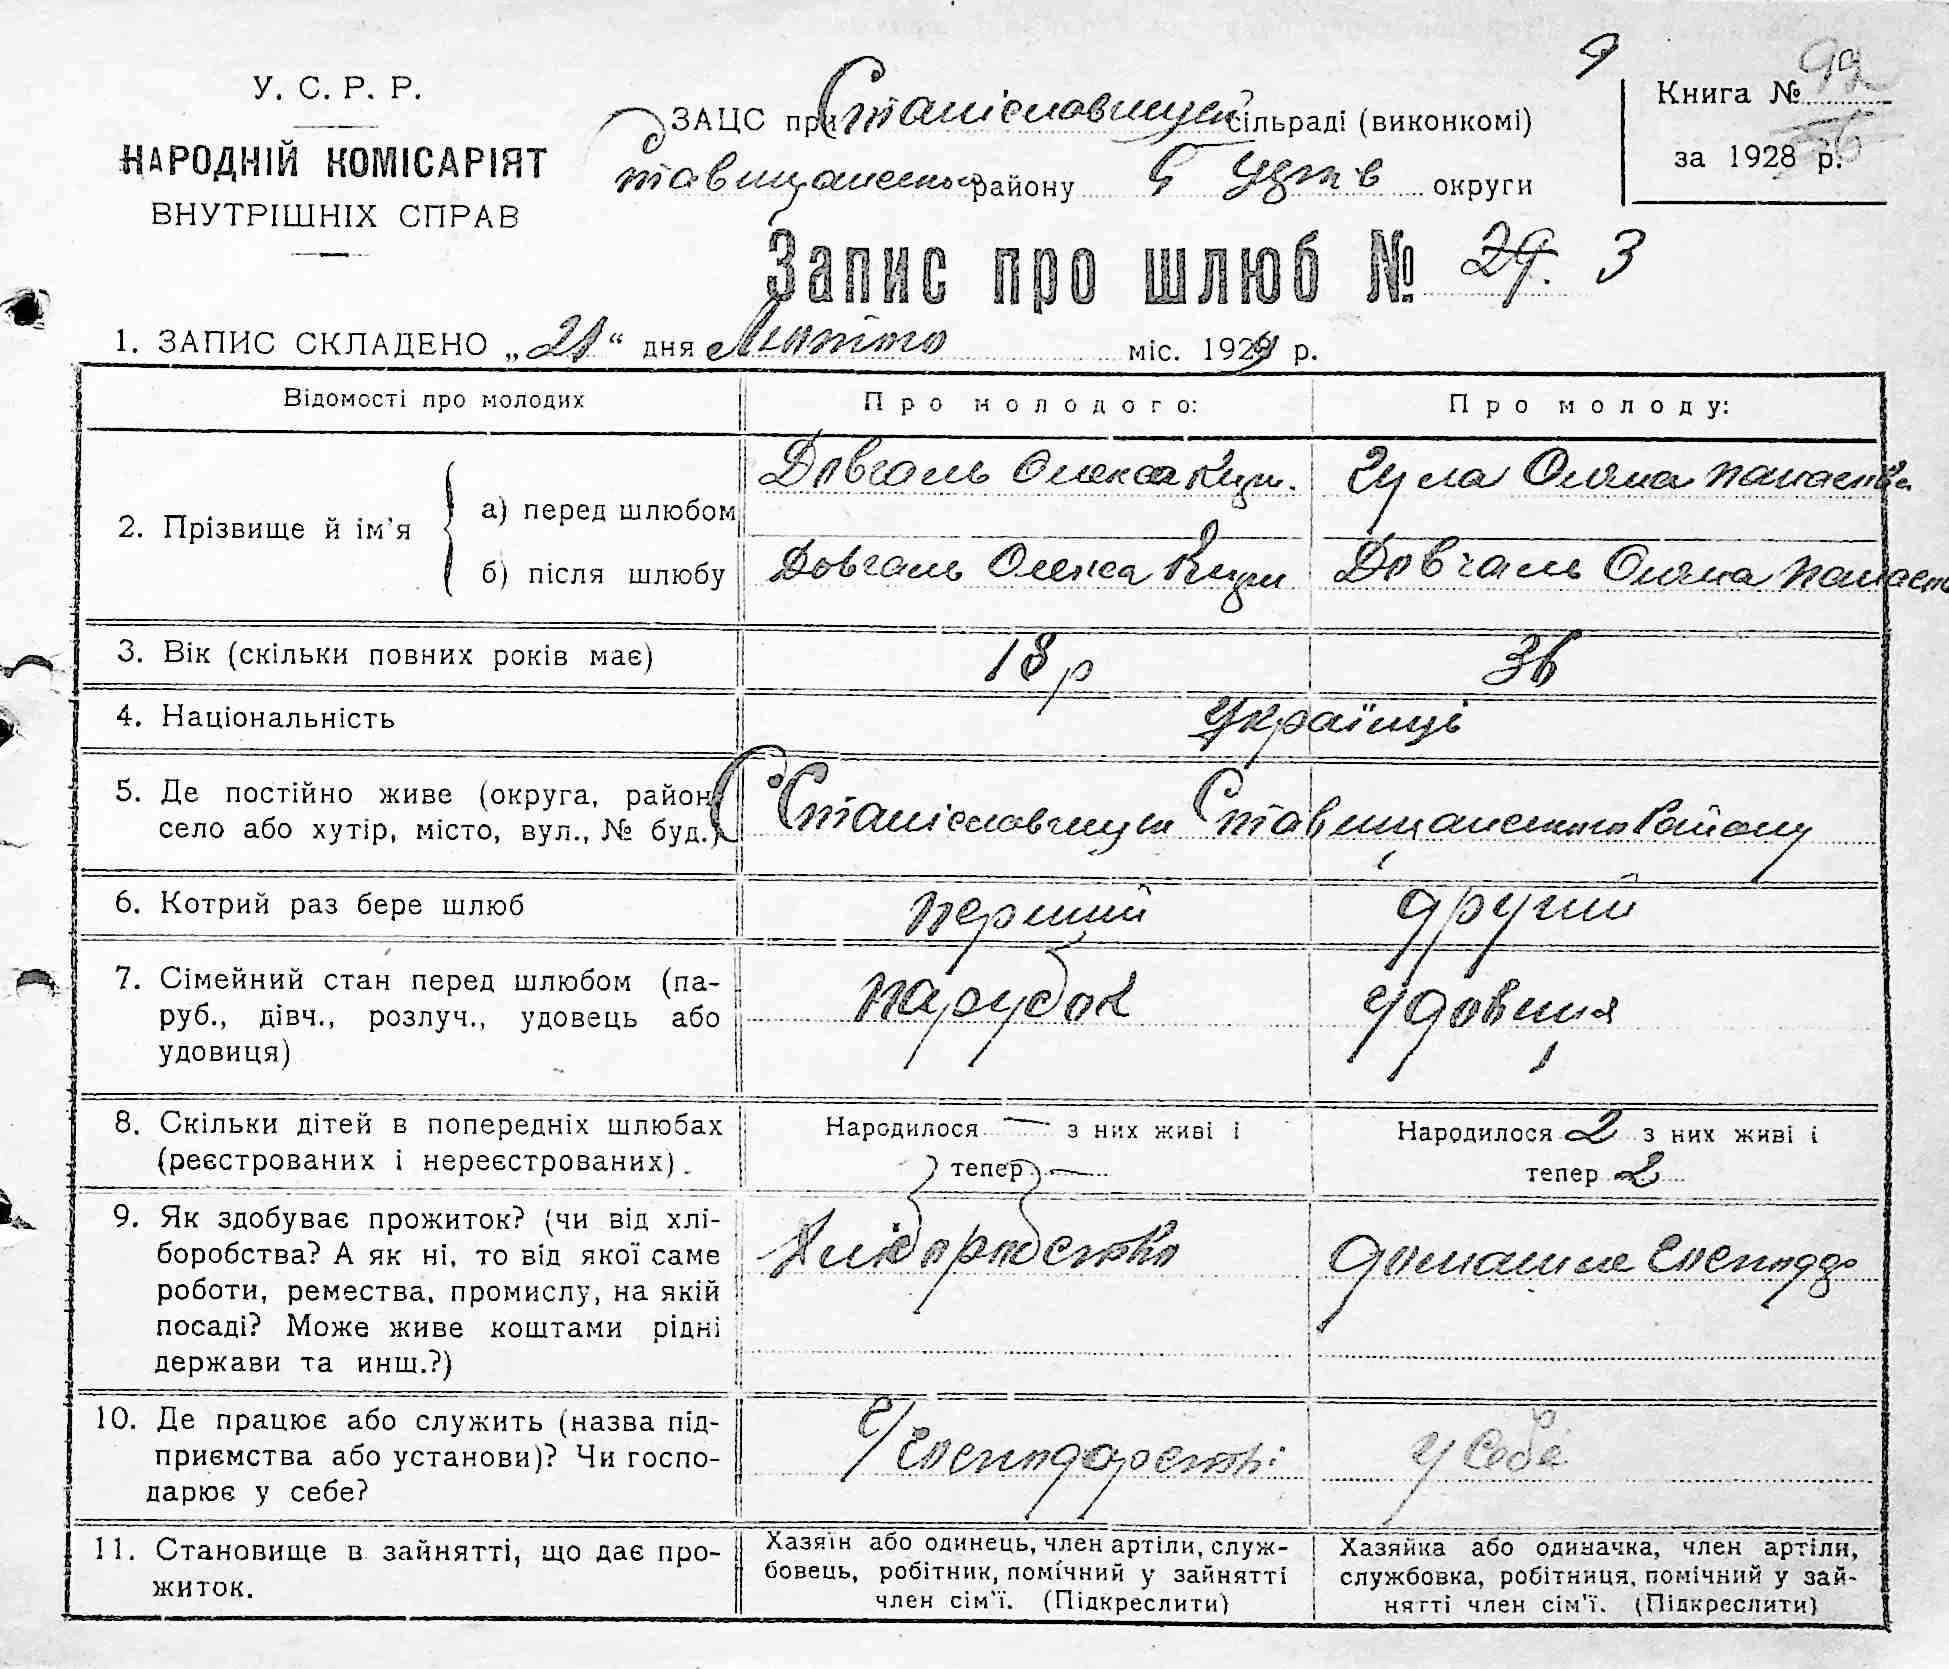 У. С. Р. Р.
НАРОДНІЙ КОМІСАРІЯТ
ВНУТРІШНІХ СПРАВ
ЗАЦС при Станіславчицкій сільраді (виконкомі)
Ставищанського району округи
Книга №
за 1928 р.
Запис про шлюб № 29. 3
1. ЗАПИС СКЛАДЕНО „21“ дня Лютого міс. 1929 р.
Відомості про молодих
Про молодого:
Про молоду:
2. Прізвище й ім'я
а) перед шлюбом
Довгаль Олекса
Гула Олена
б) після шлюбу
Довгаль Олекса
Довгаль Олена
3. Вік (скільки повних років має)
18 р
36
4. Національність
Українці
5. Де постійно живе (округа, район,
село або хутір, місто, вул., № буд.)
С. Станіславчик Ставищанського Району
6. Котрий раз бере шлюб
перший
другий
7. Сімейний стан перед шлюбом (па-
руб., дівч., розлуч., удовець або
удовиця)
парубок
удовиця
8. Скільки дітей в попередніх шлюбах
(реєстрованих і нереєстрованих).
Народилося — з них живі і
тепер —
Народилося 2 з них живі і
тепер 2
9. Як здобуває прожиток? (чи від хлі-
боробства? А як ні, то від якої саме
роботи, ремества, промислу, на якій
посаді? Може живе коштами рідні
держави та инш.?)
Хліборобство
домашнє господ
10. Де працює або служить (назва під-
приємства або установи)? Чи госпо-
дарює у себе?
У господарстві
у себе
11. Становище в зайнятті, що дає про-
житок.
Хазяїн або одинець, член артіли, служ-
бовець, робітник, помічний у зайнятті
член сім'ї. (Підкреслити)
Хазяйка або одиначка, член артіли,
службовка, робітниця, помічний у зай-
нятті член сім'ї. (Підкреслити)